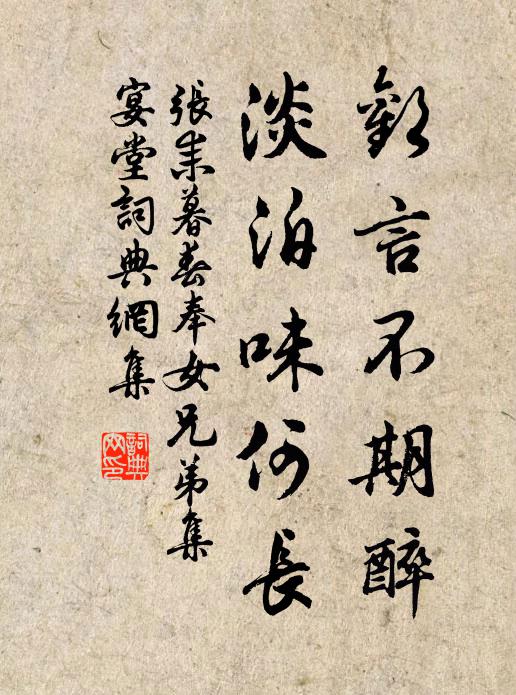 歡言不期醉
淡泊味何長
張耒暮春奉女兄弟集
宴堂詞典網集
詞典网印